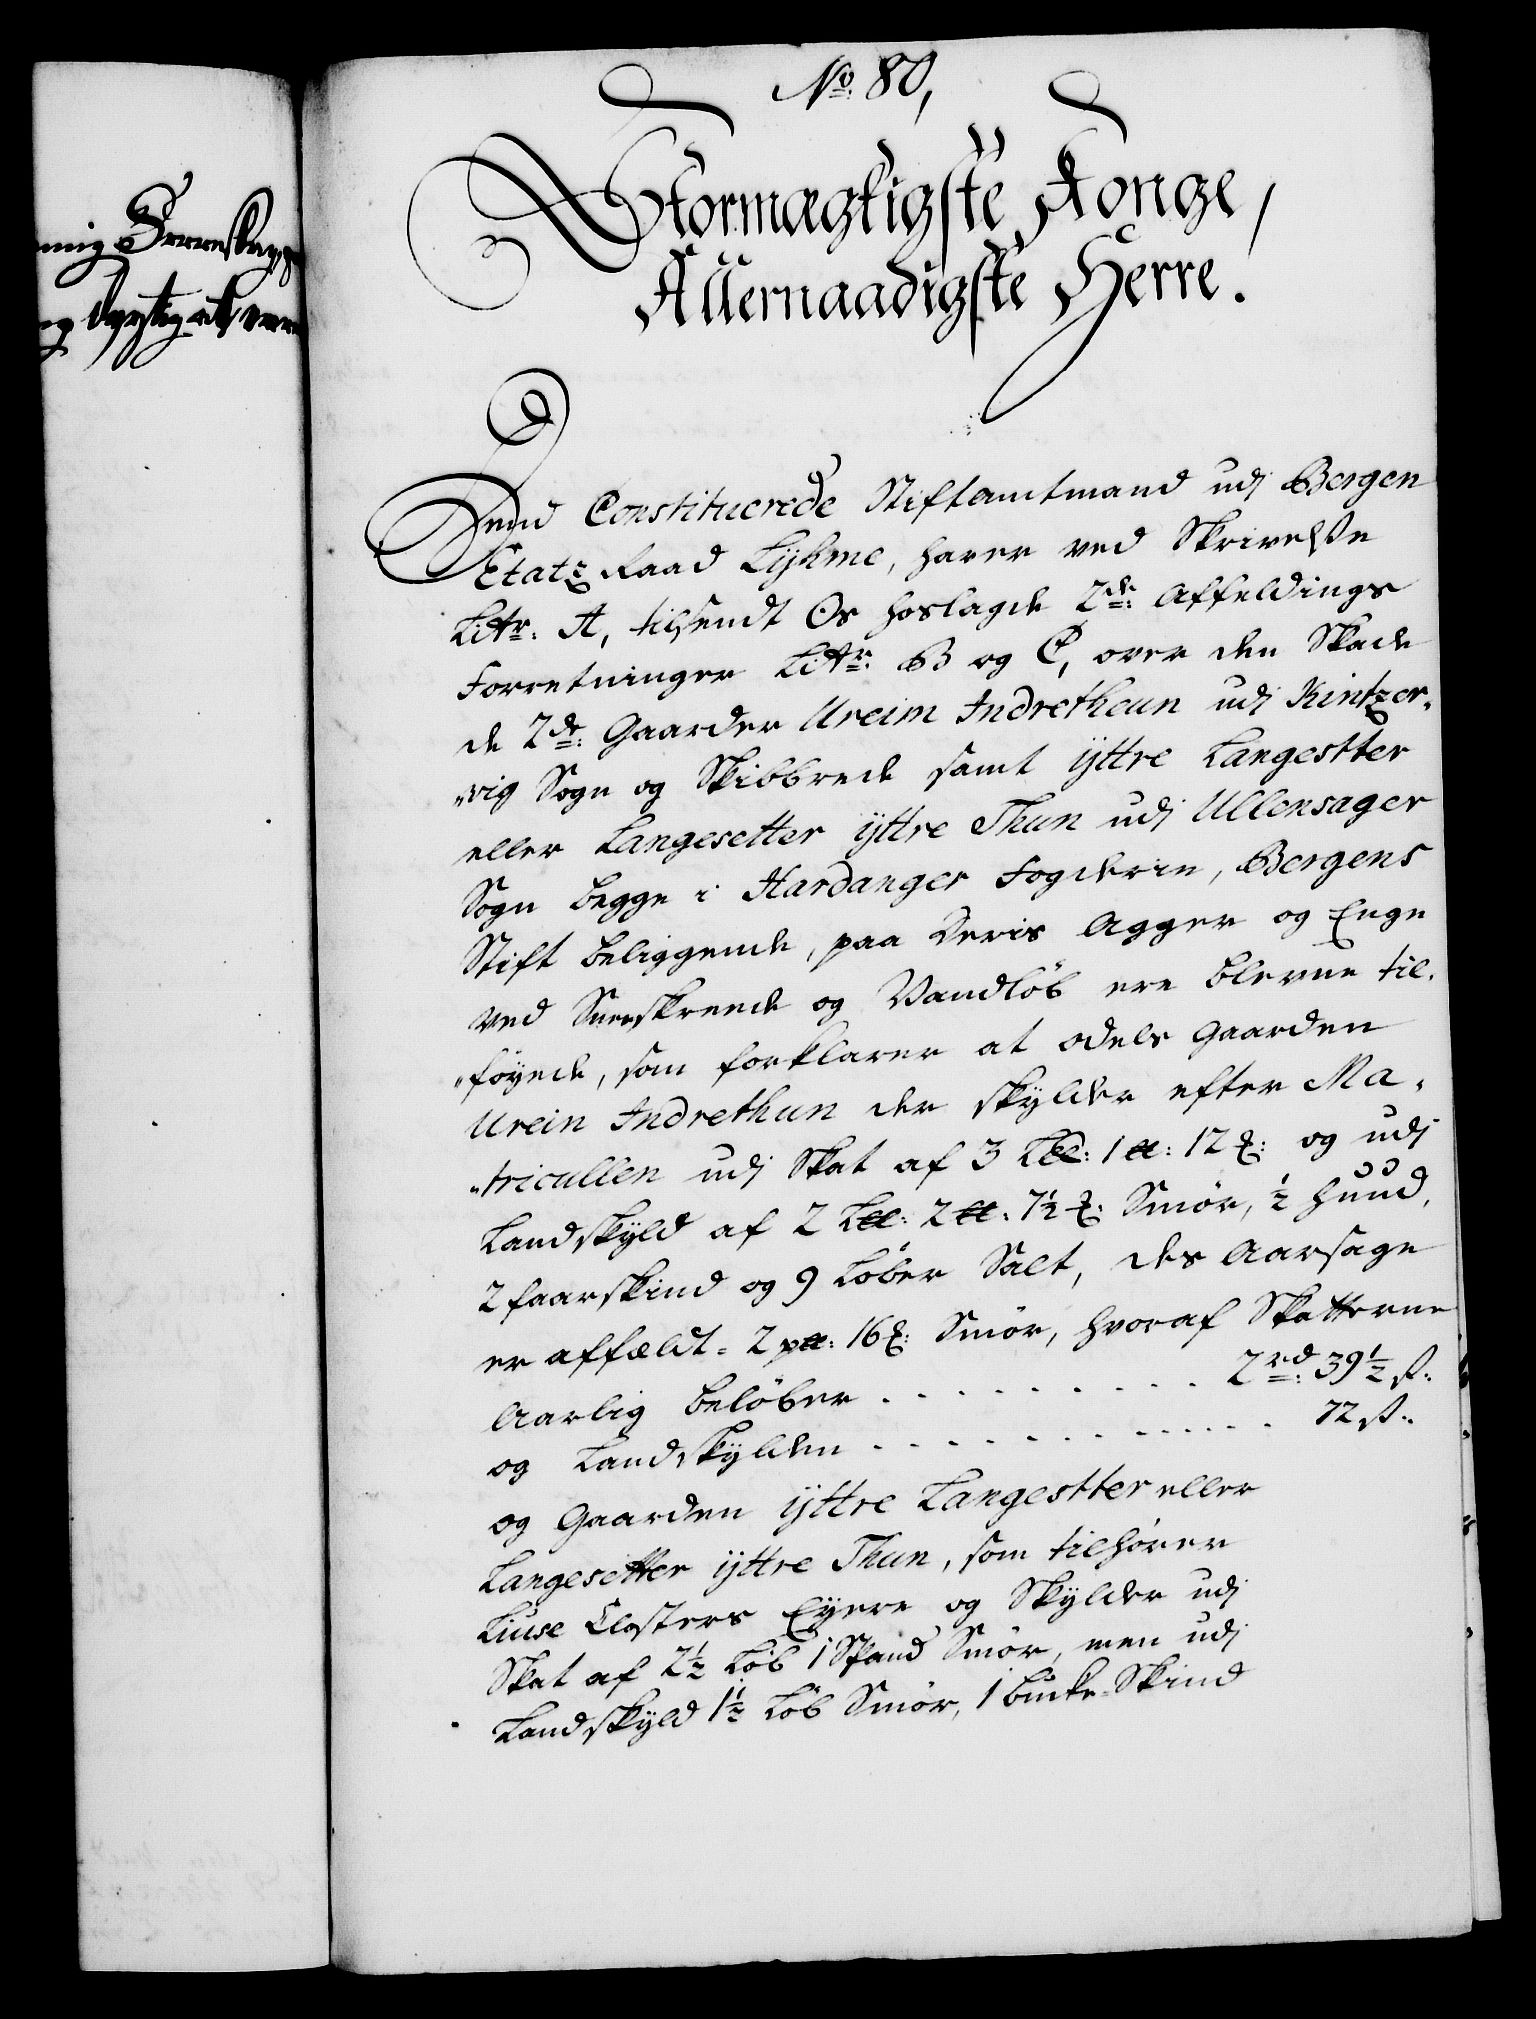 No: 80,
Stormægtigste Konge,
Allernaadigste Herre.
Dend Constituerede Stiftamtmand udj Bergen
Etatz Raad Lÿhme, haver ved Skrivelße
Litr: A, tilsendt Os hoslagde 2de: Affeldings
Forretninger Litr: B og C, over den Skade
de 2de: Gaarder Ureim Indrethun udj Kintzer-
"vig Sogn og Skibbrede samt ÿttre Langestter
eller Langesetter ÿttre Thun udj Ullensager
Sogn begge i Hardanger Fogderie, Bergens
Stift beliggende, paa Deris Agger og Enge
ved Sneeskreede og Vandløb ere blevne til-
"føyede, som forklarer at odels Gaarden
Urein Indrethun der skylder efter Ma-
"tricullen udj Skat af 3 L℔: 1 ℔: 12 : og udj
Landskyld af 2 L℔: 2 ℔: 7½ : Smør, ½ huud,
2 faarskind og 9 Løber Salt, des Aarsage
er affældt = 2 p℔: 16 : Smør, hvoraf Skatterne
Aarlig beløber . . . . . . . . . 2rd: 39½ ß.
og Landskylden . . . . . . . . . . . 72 ß.
og Gaarden ÿttre Langestter eller
Langesetter ÿttre Thun, som tilhører
Liuse Closters Eyere og Skylder udj
Skat af 2½ Løb 1 Spand Smør, men udj
Landskyld 1½ Løb Smør, 1 bucke-Skind